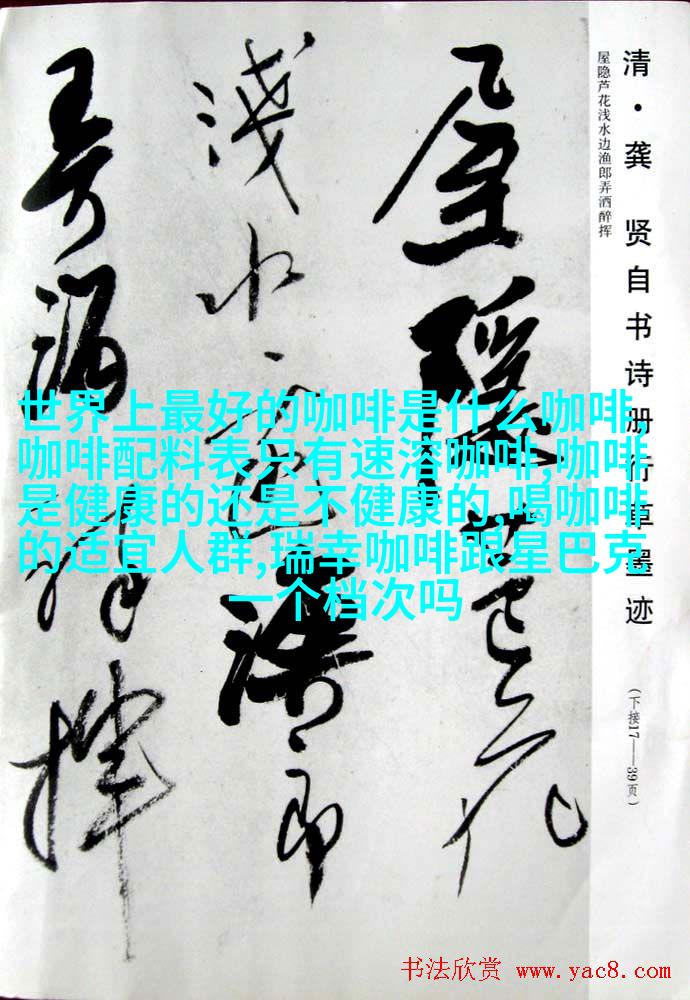 清·龚 贤自书诗册行草墨迹
(下接17——39页)
屋隐芦花浅水边渔郎弄洒醉挥
屋隱蘆花
淺水邊漁郎
弄洒醉揮
世界上最好的咖啡是什么咖啡,
咖啡配料表只有速溶咖啡,咖啡
是健康的还是不健康的,喝咖啡
的适宜人群,瑞幸咖啡跟星巴克
一个档次吗
书法欣赏 www.yac8.com